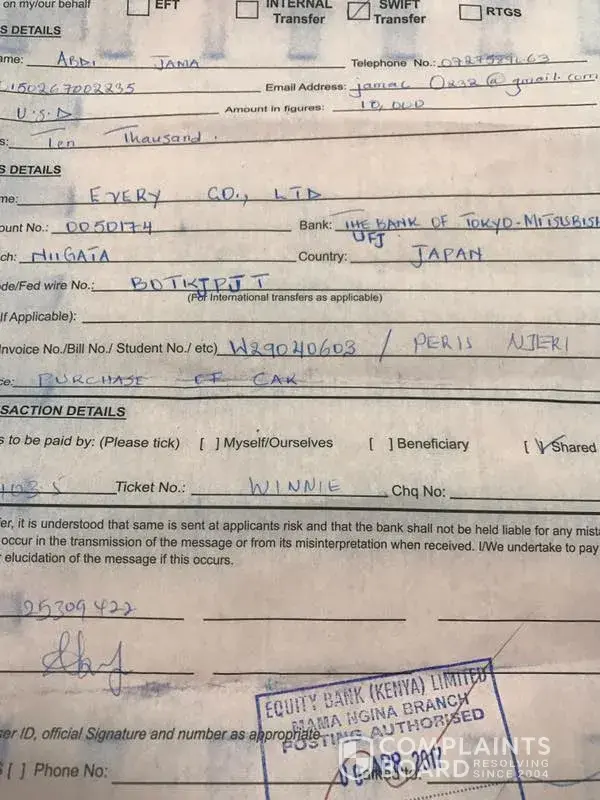 on my/our behalf EFT INTERNAL Transfer SWIFT Transfer RTGS
S DETAILS
ame: ABDI JAMA Telephone No.:
150267002235 Email Address: jamac 0232@gmail.com
U.S.D Amount in figures: 10,000
s: Ten Thausand.
S DETAILS
me: EVERY CO., LTD
ount No.: 0050174 Bank: THE BANK OF TOKYO-MITSUBISH
UFJ
ch: NIIGATA Country: JAPAN
de/Fed wire No.: BOTKJPJT
(For International transfers as applicable)
If Applicable):
Invoice No./Bill No./ Student No./ etc) W29040603 / PERIS NJERI
ce: PURCHASE OF CAR
SACTION DETAILS
s to be paid by: (Please tick) [ ] Myself/Ourselves [ ] Beneficiary [ ] Shared
Ticket No.: WINNIE Chq No:
fer, it is understood that same is sent at applicants risk and that the bank shall not be held liable for any mista
occur in the transmission of the message or from its misinterpretation when received. I/We undertake to pay
elucidation of the message if this occurs.
25309422
EQUITY BANK (KENYA) LIMITED
MAMA NGINA BRANCH
POSTING AUTHORISED
ser ID, official Signature and number as appropriate
APR 2017
S [ ] Phone No:
COMPLAINTS
BOARD RESOLVING
SINCE 2004